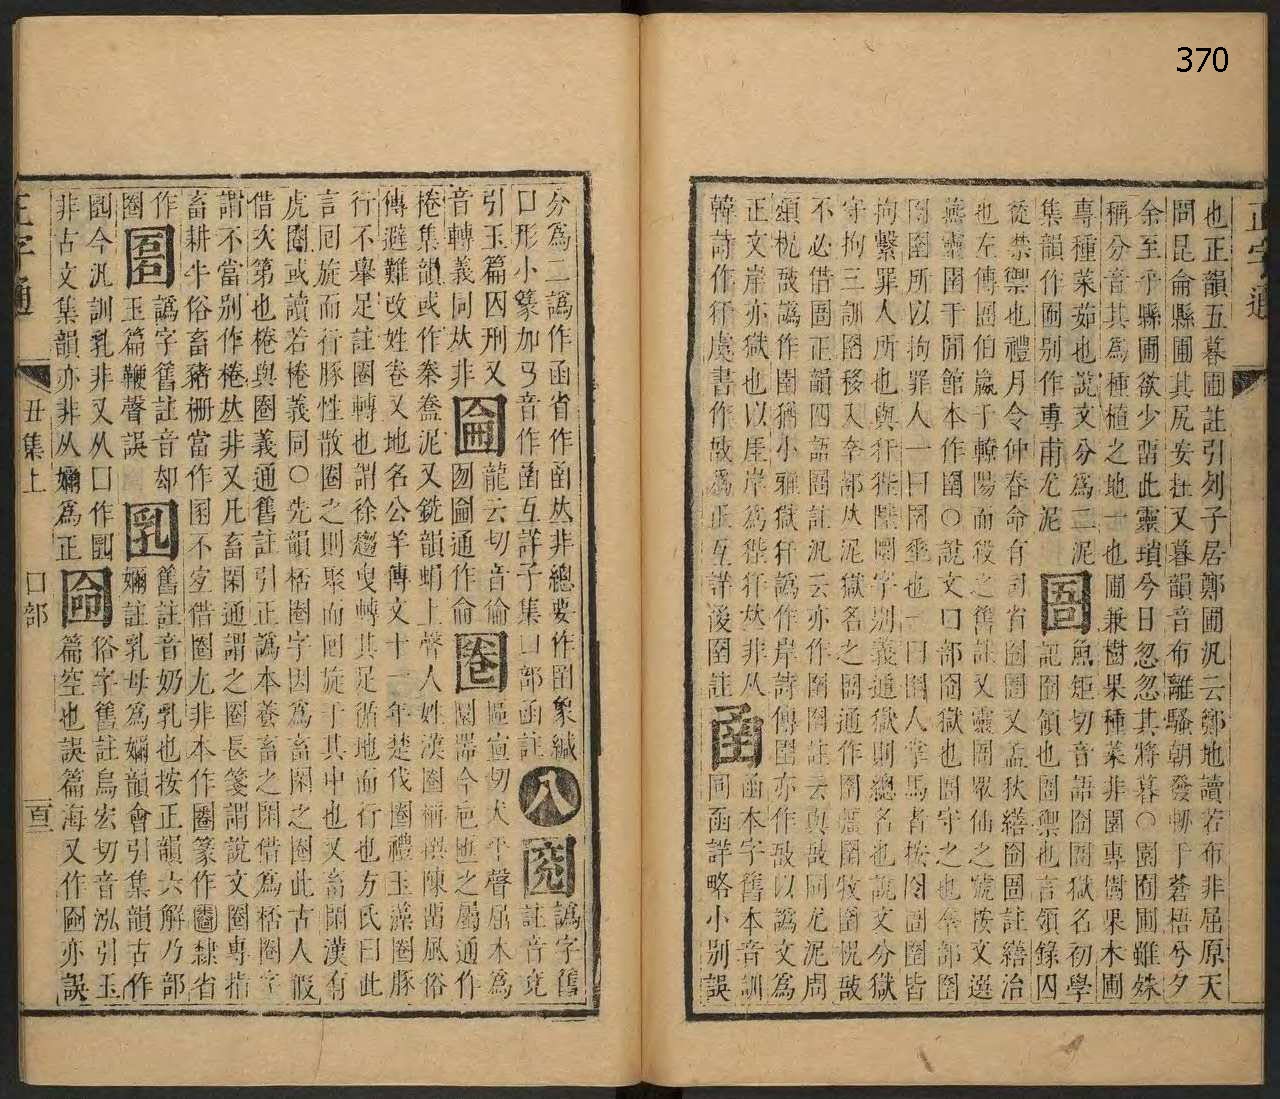 370
正字通
也正韻五暮圃註引列子居鄭圃汎云鄭地讀若布非屈原天
問昆侖縣圃其尻安在又暮韻音布離騷朝發軔于蒼梧兮夕
余至乎縣圃欲少留此靈瑣兮日忽忽其將暮○園囿圃雖殊
稱分音其爲種植之地一也圃兼樹果種菜非園專樹果木圃
專種菜茹也說文分爲二泥
圄
魚矩切音語囹圄獄名初學
記囹領也圄禦也言領錄囚
集韻作圃別作專甫尤泥
從禁禦也禮月令仲春命有司省囹圄又孟秋繕囹圄註繕治
也左傳圄伯嬴于轑陽而殺之舊註又靈圄衆仙之號按文選
燕靈圄于閒館本作圉○說文口部囹獄也圄守之也㚔部圉
囹圄所以拘罪人一曰圉垂也一曰圉人掌馬者按囹圄圉皆
拘繫罪人所也與犴狴陸圜字別義通獄則總名也說文分獄
守拘三訓圉移入㚔部从泥獄名之圄通作圉圉牧圉柷敔
不必借圄正韻四語圄註汎云亦作圉圉註云與敔同尤泥周
頌柷敔譌作圉猶小雅獄犴譌作岸詩傳圉亦作敔以譌文爲
正文岸亦獄也以厓岸爲狴犴𠀤非从
圅
函本字舊本音訓
同函詳略小別誤
韓詩作犴虞書作敔爲正互詳後圉註
分爲二譌作函省作凾𠀤非總要作圅象緘
口形小篆加𢎘音作圅互詳子集凵部函註
八
㘫
譌字舊
註音竟
引玉篇囚刑又
音轉義同𠀤非
圇
龍云切音倫
囫圇通作侖
圈
區宣切犬平聲屈木爲
圜器今巵匜之屬通作
棬集韻或作桊㮥泥又銑韻蜎上聲人姓漢圈稱撰陳留風俗
傳避難改姓卷又地名公羊傳文十一年楚伐圈禮玉藻圈豚
行不舉足註圈轉也謂徐趨曳轉其足循地而行也方氏曰此
言囘旋而行豚性散圈之則聚而囘旋于其中也又畜閑漢有
虎圈或讀若棬義同○先韻桰圈字因爲畜閑之圈此古人假
借次第也棬與圈義通舊註引正譌本養畜之閑借爲桰圈字
謂不當別作棬𠀤非又凡畜閑通謂之圈長箋謂說文圈專指
畜耕牛俗畜豬柵當作圂不定借圈尤非本作圈篆作圈隸省
作
圈
𡇼
譌字舊註音却
玉篇鞭聲誤
㘝
舊註音奶乳也按正韻六解乃部
嬭註乳母爲嬭韻會引集韻古作
㘝今汎訓乳非又从囗作㘝
非古文集韻亦非从嬭爲正
㘤
俗字舊註烏宏切音泓引玉
篇空也誤篇海又作圙亦誤
正字通
丑集上
口部
百三